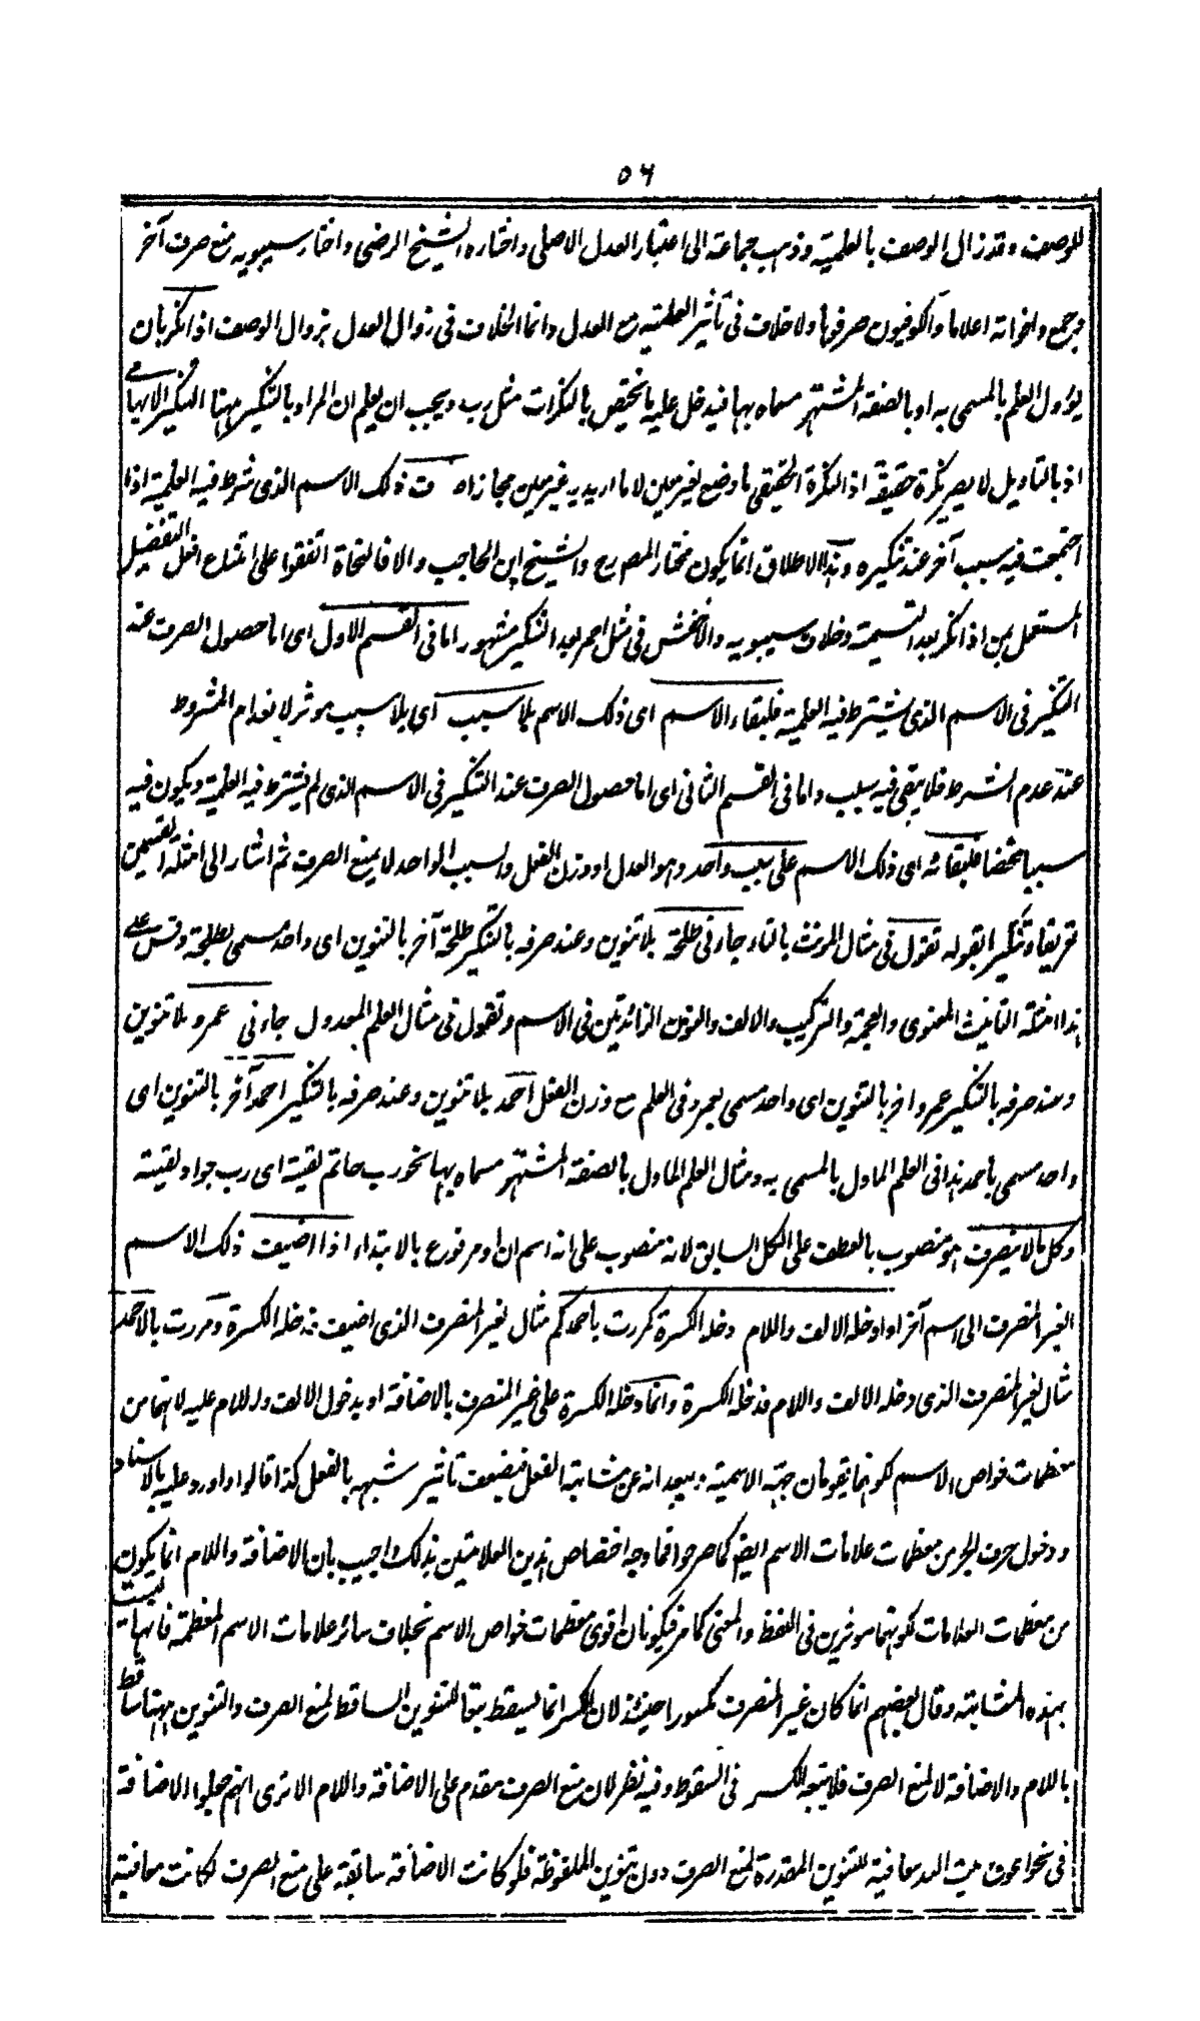 ٥٦
للوصف وقد زال الوصف بالعلمية وذهب جماعة الى اعتبار العدل الاصلى واختاره الشيخ الرضى واختار سيبويه منع صرف آخر
وجمع واخواته اعلاما والكوفيون صرفوها ولا خلاف فى تأثير العلمية مع العدل وانما الخلاف فى زوال العدل بزوال الوصف اذا نكر بان
يؤول العلم بالمسمى به او بالصفة المشتهر مسماه بها فيدخل عليه ما يختص بالنكرات مثل رب ويجب ان يعلم ان المراد بالتنكير ههنا التنكير الابهامى
اذ بالتاويل لا يصير نكرة حقيقة اذ النكرة الحقيقى ما وضع لغير معين لا ما اريد به غير معين مجازا ف ذلك الاسم الذى شرط فيه العلمية اذا
اجتمعت فيه سبب آخر عند تنكيره وهذا الاطلاق انما يكون مختار المصرح والشيخ ابن الحاجب والا فالنحاة اتفقوا على امتناع افعل التفضيل
المستعمل بمن اذا نكر بعد التسمية وخلاف سيبويه والاخفش فى مثل احمر بعد التنكير مشهور اما فى القسم الاول اى اما حصول الصرف عند
التنكير فى الاسم الذى يشترط فيه العلمية فلبقاء الاسم اى ذلك الاسم بلا سبب اى بلا سبب موثر لانعدام المشروط
عند عدم الشرط فلا يبقى فيه سبب واما فى القسم الثانى اى اما حصول الصرف عند التنكير فى الاسم الذى لم يشترط فيه العلمية ويكون فيه
سببا محضا فلبقائه اى ذلك الاسم على سبب واحد وهو العدل او وزن الفعل والسبب الواحد لا يمنع الصرف ثم اشار الى امثلة القسمين
تعريفا وتنكيرا بقوله تقول فى مثال المؤنث بالتاء جاءنى طلحة بلا تنوين وعند صرفه بالتنكير طلحة آخر بالتنوين اى واحد مسمى بطلحة وقس على
هذا امثلة التانيث المعنوى والعجمة والتركيب والالف والنون الزائدتين فى الاسم وتقول فى مثال العلم المعدول جاءنى عمر و بلا تنوين
وعند صرفه بالتنكير عمر و اخر بالتنوين اى واحد مسمى بعمر وفى العلم مع وزن الفعل احمد بلا تنوين وعند صرفه بالتنكير احمد آخر بالتنوين اى
واحد مسمى باحمد هذا فى العلم الماول بالمسمى به ومثال العلم الماول بالصفة المشتهر مسماه بها نحو رب حاتم لقيته اى رب جواد لقيته
وكل ما لا ينصرف هو منصوب بالعطف على الكل السابق لانه منصوب على انه اسم ان او مرفوع بالابتداء اذا اضيف ذلك الاسم
الغير المنصرف الى اسم آخر او ادخله الالف واللام دخله الكسرة كمررت باحمدكم مثال لغير المنصرف الذى اضيف فدخله الكسرة ومررت بالاحمد
مثال لغير المنصرف الذى دخله الالف واللام فدخله الكسرة وانما دخله الكسرة على غير المنصرف بالاضافة او بدخول الالف واللام عليه لانهما من
معظمات خواص الاسم لكونهما يقومان جهة الاسمية ويبعدانه عن مشابهة الفعل فيضعف تاثير شبهه بالفعل كذا قالوا واورد عليه بالاسناد
ودخول حرف الجر من معظمات علامات الاسم ايضا كما صرحوا فما وجه اختصاص هذين العلامتين بذلك واجيب بان الاضافة واللام انما يكون
من معظمات العلامات لكونهما موثرين فى اللفظ والمعنى كما مر فيكونان اقوى معظمات خواص الاسم بخلاف سائر علامات الاسم المعظمة فانها ليست
بهذه المشابة وقال بعضهم انما كان غير المنصرف مكسورا حينئذ لان الكسر انما يسقط تبعا للتنوين الساقط لمنع الصرف والتنوين ههنا ساقط
باللام والاضافة لا لمنع الصرف فلا يتبعه الكسر فى السقوط وفيه نظر لان منع الصرف مقدم على الاضافة واللام الا ترى انهم جعلوا الاضافة
فى نحو معافية للتنوين المقدرة لمنع الصرف دون تنوين الملفوظة فلو كانت الاضافة سابقة على منع الصرف لكانت معافية